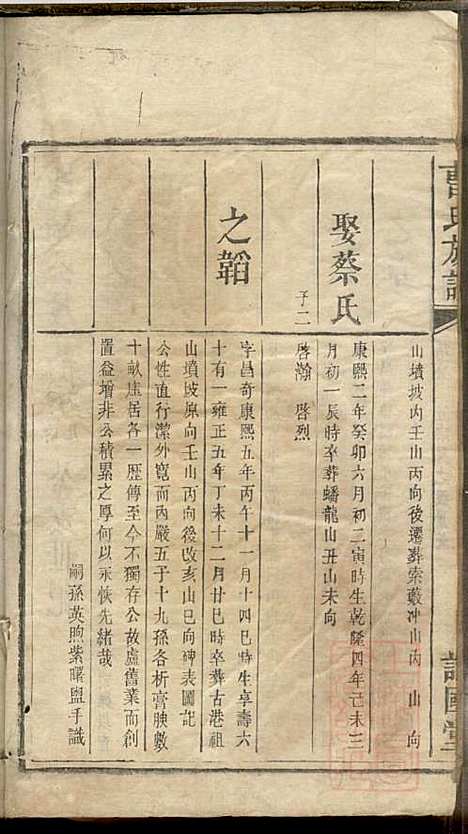 曹氏族譜
山墳坡內壬山丙向後遷葬索藪冲山丙 山 向
娶蔡氏
康熙二年癸卯六月初二寅時生乾隆四年己未三
月初一辰時卒葬蟠龍山丑山未向
子二
啓瀚 啓烈
之韜
字昌奇康熙五年丙午十一月十四巳時生享壽六
十有一雍正五年丁未十二月廿巳時卒葬古港祖
山墳坡原向壬山丙向後改亥山巳向碑表圖記
公性直行潔外寬而內嚴五子十九孫各析膏腴數
十畝庄居各一歷傳至今不獨存公故廬舊業而創
置益增非公積累之厚何以永恢先緒哉
嗣孫英煦紫曙盥手識